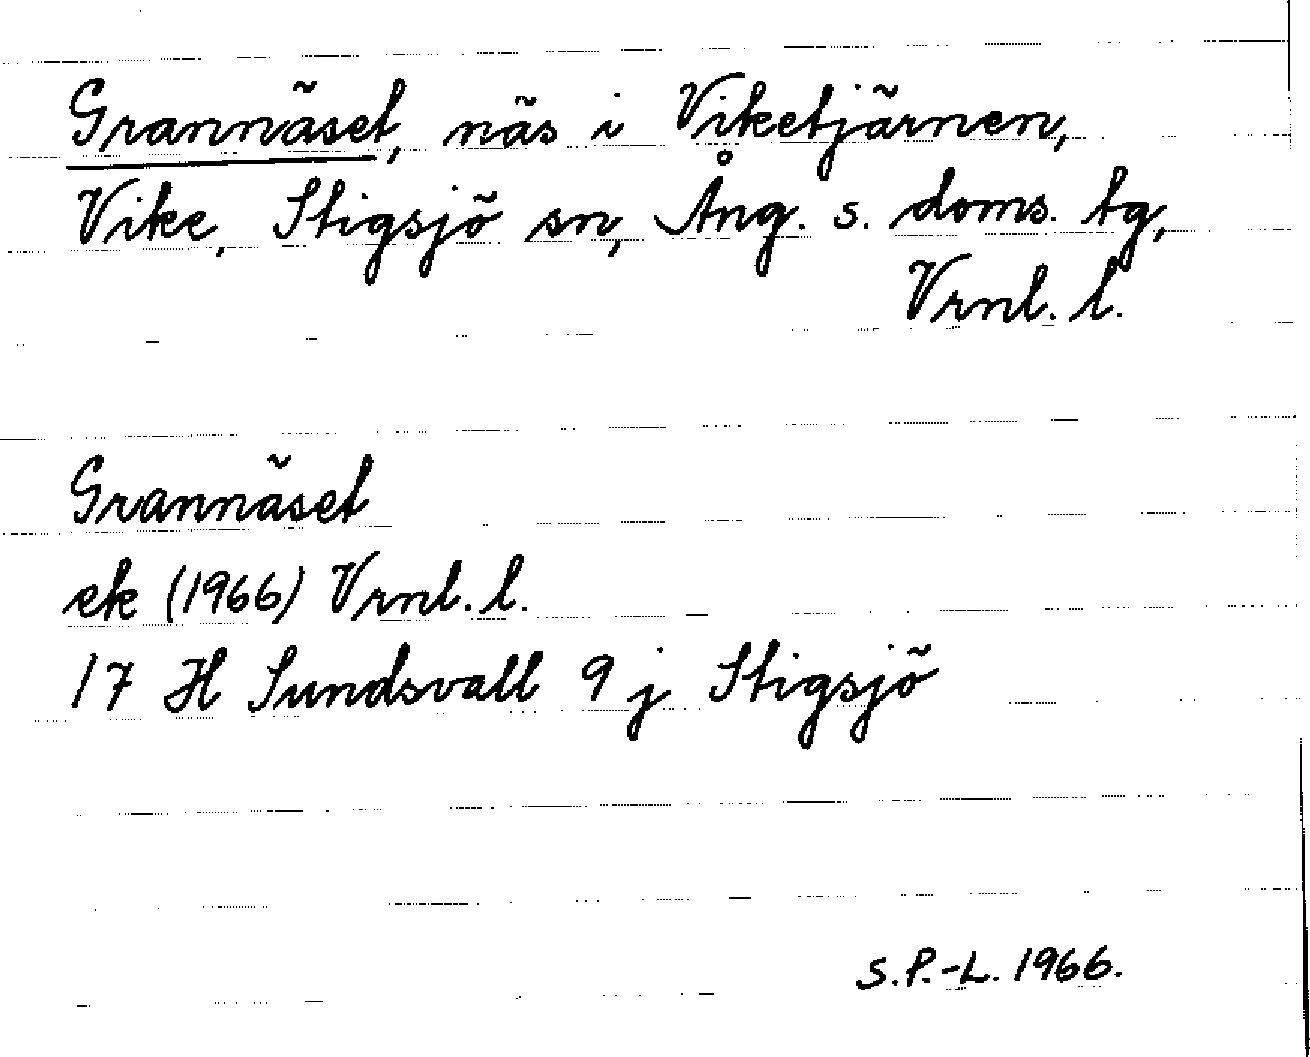 Grannäset, näs i Viketjärnen,
Vike, Stigsjö sn, Ång. s. doms. tg,
Vrnl. l.
Grannäset
ek (1966) Vrnl. l.
17 H Sundsvall 9 j Stigsjö
S.P.-L. 1966.